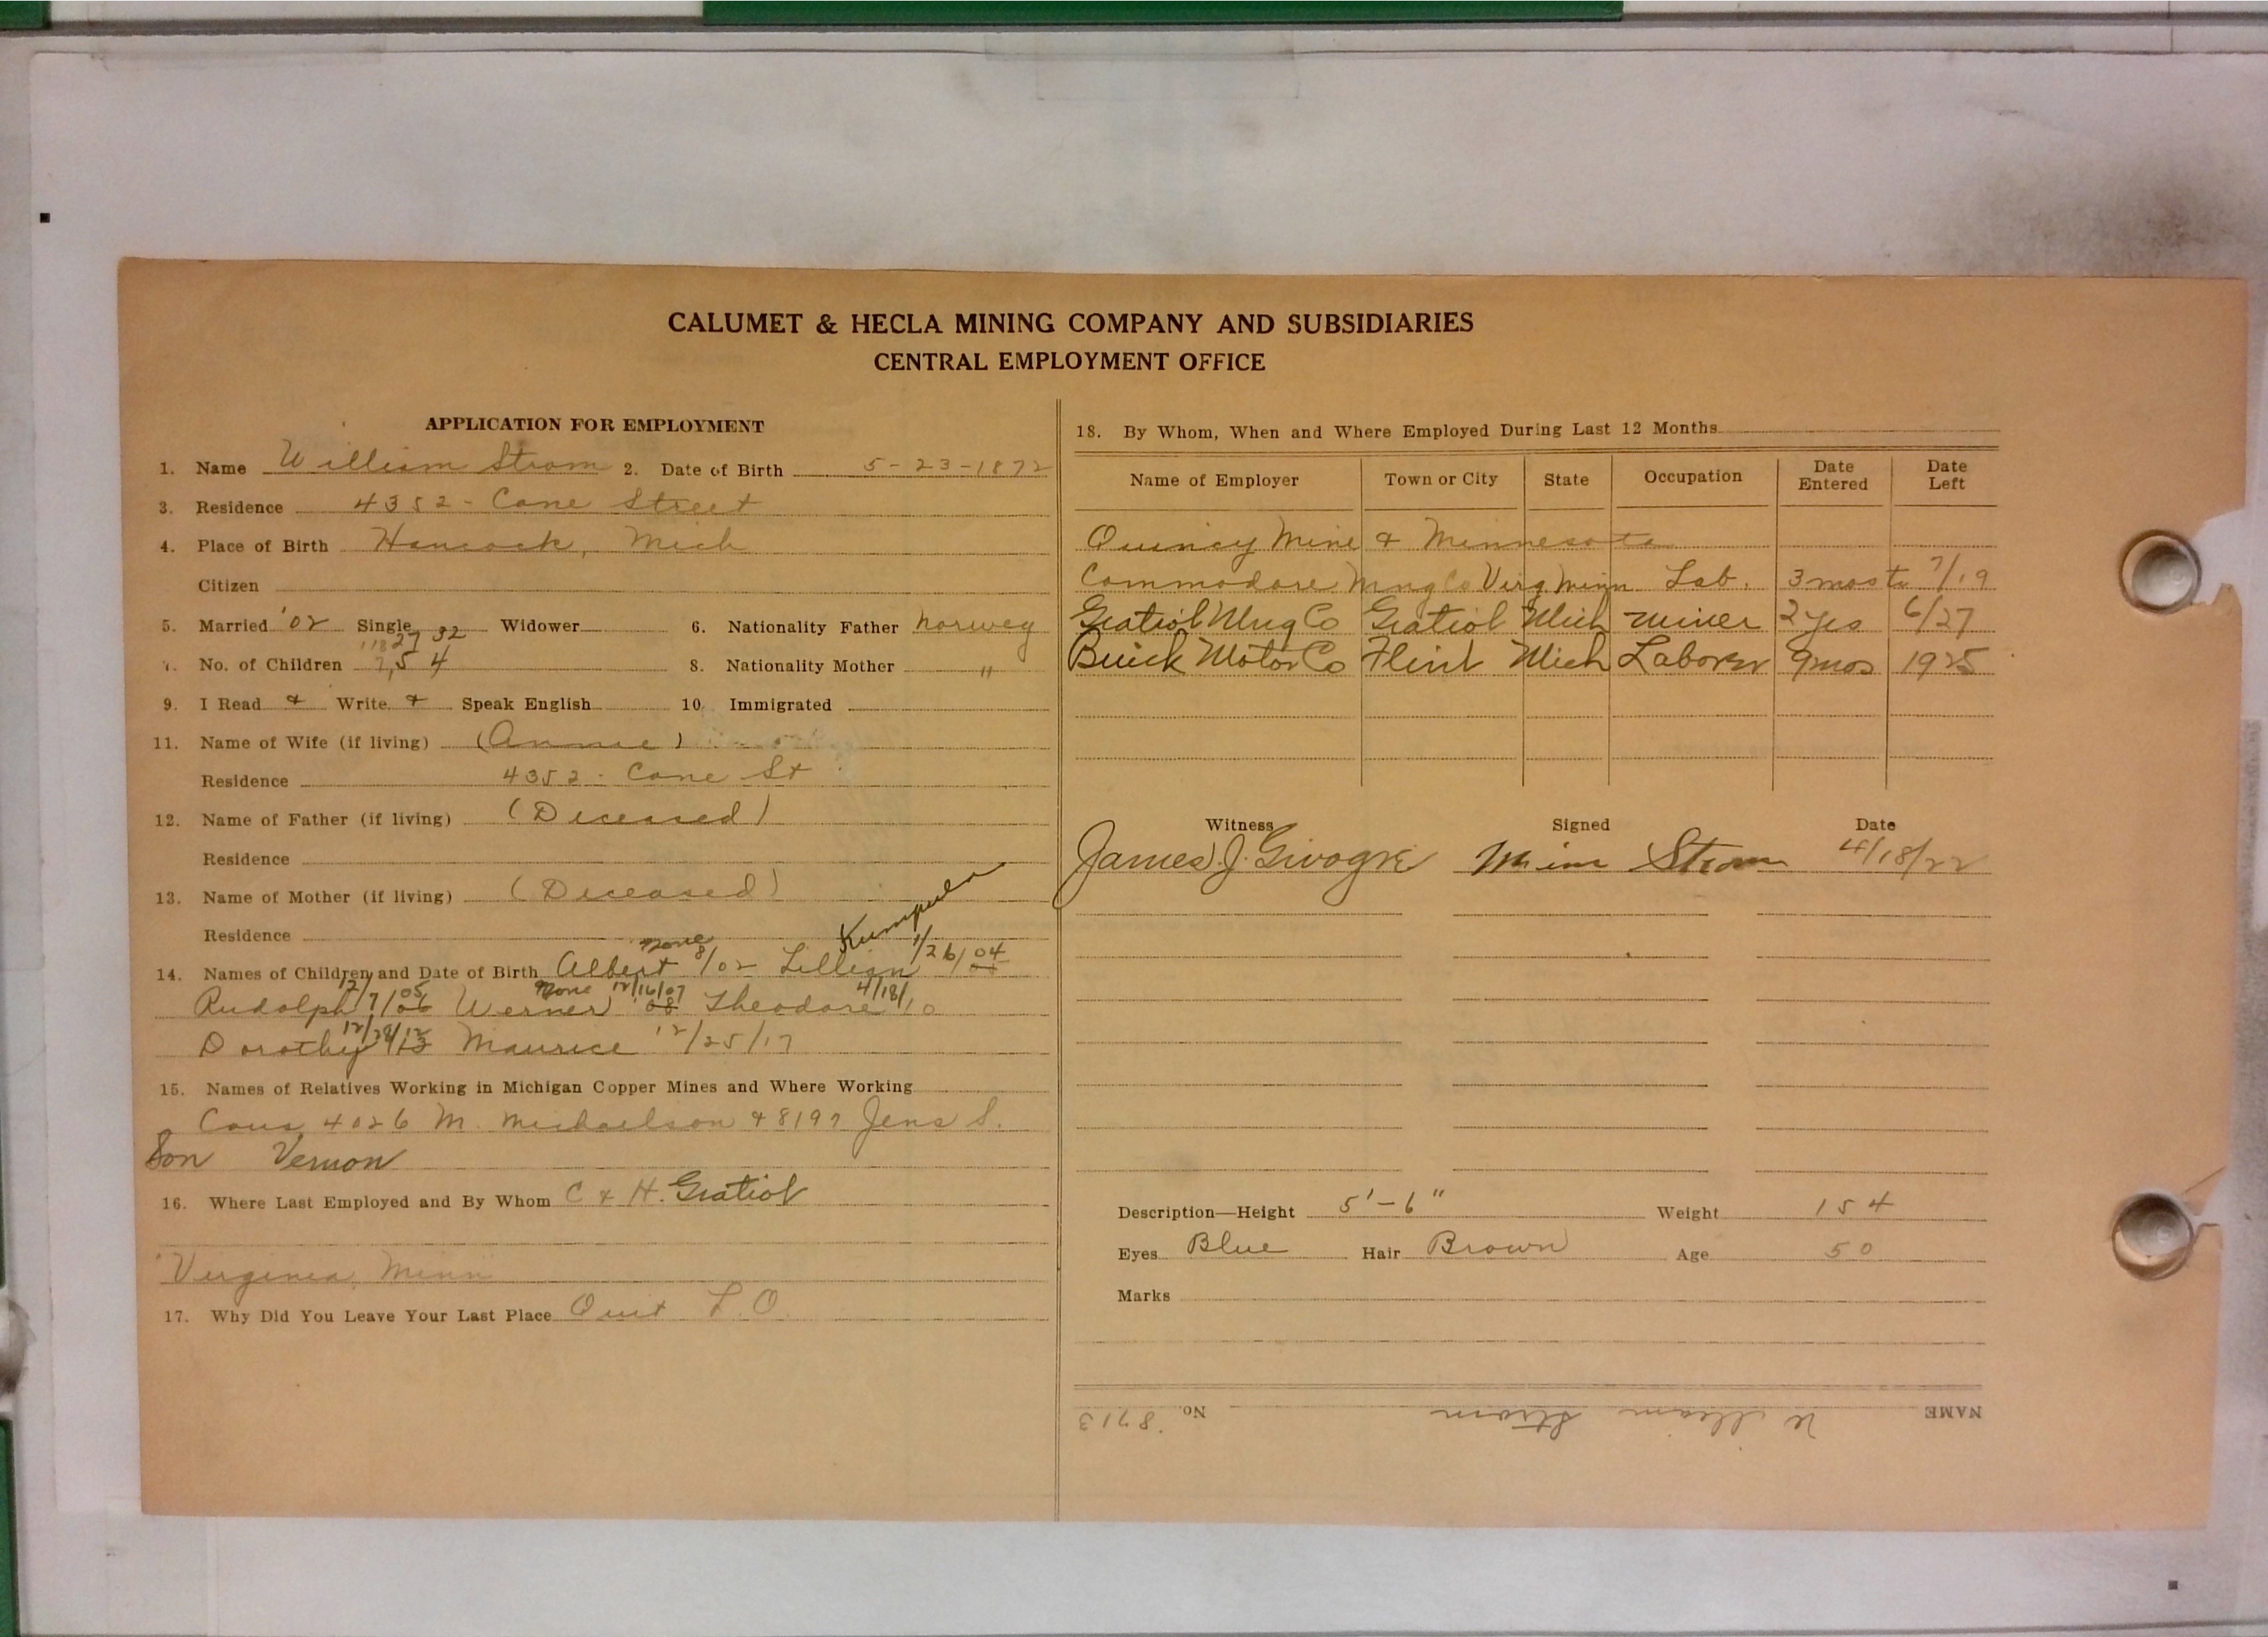 CALUMET & HECLA MINING COMPANY AND SUBSIDIARIES
CENTRAL EMPLOYMENT OFFICE
APPLICATION FOR EMPLOYMENT
1. Name William Strom 2. Date of Birth 5-23-1872
3. Residence 4352 - Cone Street
4. Place of Birth Hancock, Mich
Citizen
5. Married '02 Single Widower 6. Nationality Father Norway
27 32
7. No. of Children 7, 5 4 8. Nationality Mother "
9. I Read & Write & Speak English 10. Immigrated
11. Name of Wife (if living) (Annie)
Residence 4352 - Cone St
12. Name of Father (if living) (Deceased)
Residence
13. Name of Mother (if living) (Deceased)
Residence
Kumpula
none
14. Names of Children and Date of Birth Albert 8/02 Lillian 1/26/04
none 12/16/07
Rudolph 7/06 05 Werner '08 Theodore 4/18/10
Dorothy 12/28/12 Maurice 12/25/17
15. Names of Relatives Working in Michigan Copper Mines and Where Working
Cous. 4026 M. Michaelson & 8197 Jens S.
Son Vernon
16. Where Last Employed and By Whom C & H. Gratiot
Virginia, Minn
17. Why Did You Leave Your Last Place Quit L.O.
18. By Whom, When and Where Employed During Last 12 Months
Name of Employer Town or City State Occupation Date Entered Date Left
Quincy Mine & Minnesota
Commodore Mng Co Virg Minn Lab. 3 mos to 7/19
Gratiot Mng Co Gratiot Mich Miner 2 yrs 6/27
Buick Motor Co Flint Mich Laborer 9 mos 1925
Witness Signed Date
James J. Strom 4/18/22
Description—Height 5'-6" Weight 154
Eyes Blue Hair Brown Age 50
Marks
NAME William Strom No. 8713